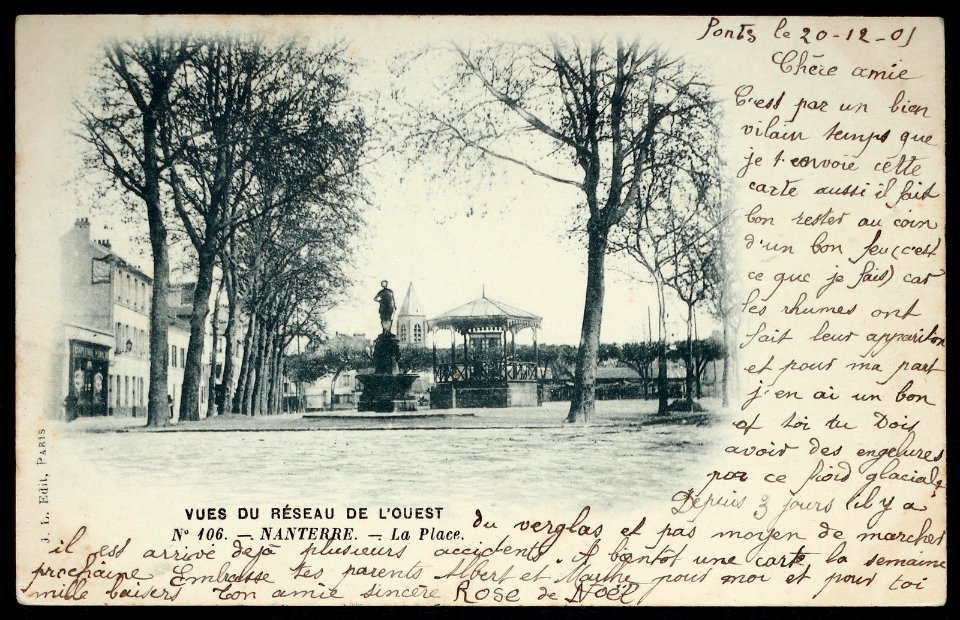 Ponts le 20-12-01
Chère amie
C'est par un bien
vilain temps que
je t'envoie cette
carte aussi il fait
bon rester au coin
d'un bon feu (c'est
ce que je fais) car
les rhumes ont
fait leur apparition
et pour ma part
j'en ai un bon
et toi tu Dois
avoir des engelures
par ce froid glacial
Depuis 3 jours il y a
du verglas et pas moyen de marcher
il est arrivé déjà plusieurs accidents. A bientôt une carte la semaine
prochaine Embrasse tes parents Albert et Marthe pour moi et pour toi
mille baisers Ton amie sincère Rose de Noël
VUES DU RÉSEAU DE L'OUEST
N° 106. — NANTERRE. — La Place.
J. L. Edit, PARIS